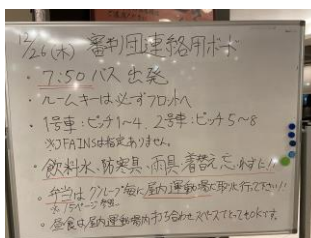 12/26(木) 審判団連絡用ボード
・7:50 バス 出発
・ルームキーは必ずフロントへ
・1号車:ピッチ1~4、2号車:ピッチ5~8
※)FAINSは指定ありません。
・飲料水、防寒具、雨具、着替え忘れずに!!
・弁当はグループ毎に屋内運動場に取に行って下さい!!
・昼食は屋内運動場内打ち合わせスペースでとってもOKです。